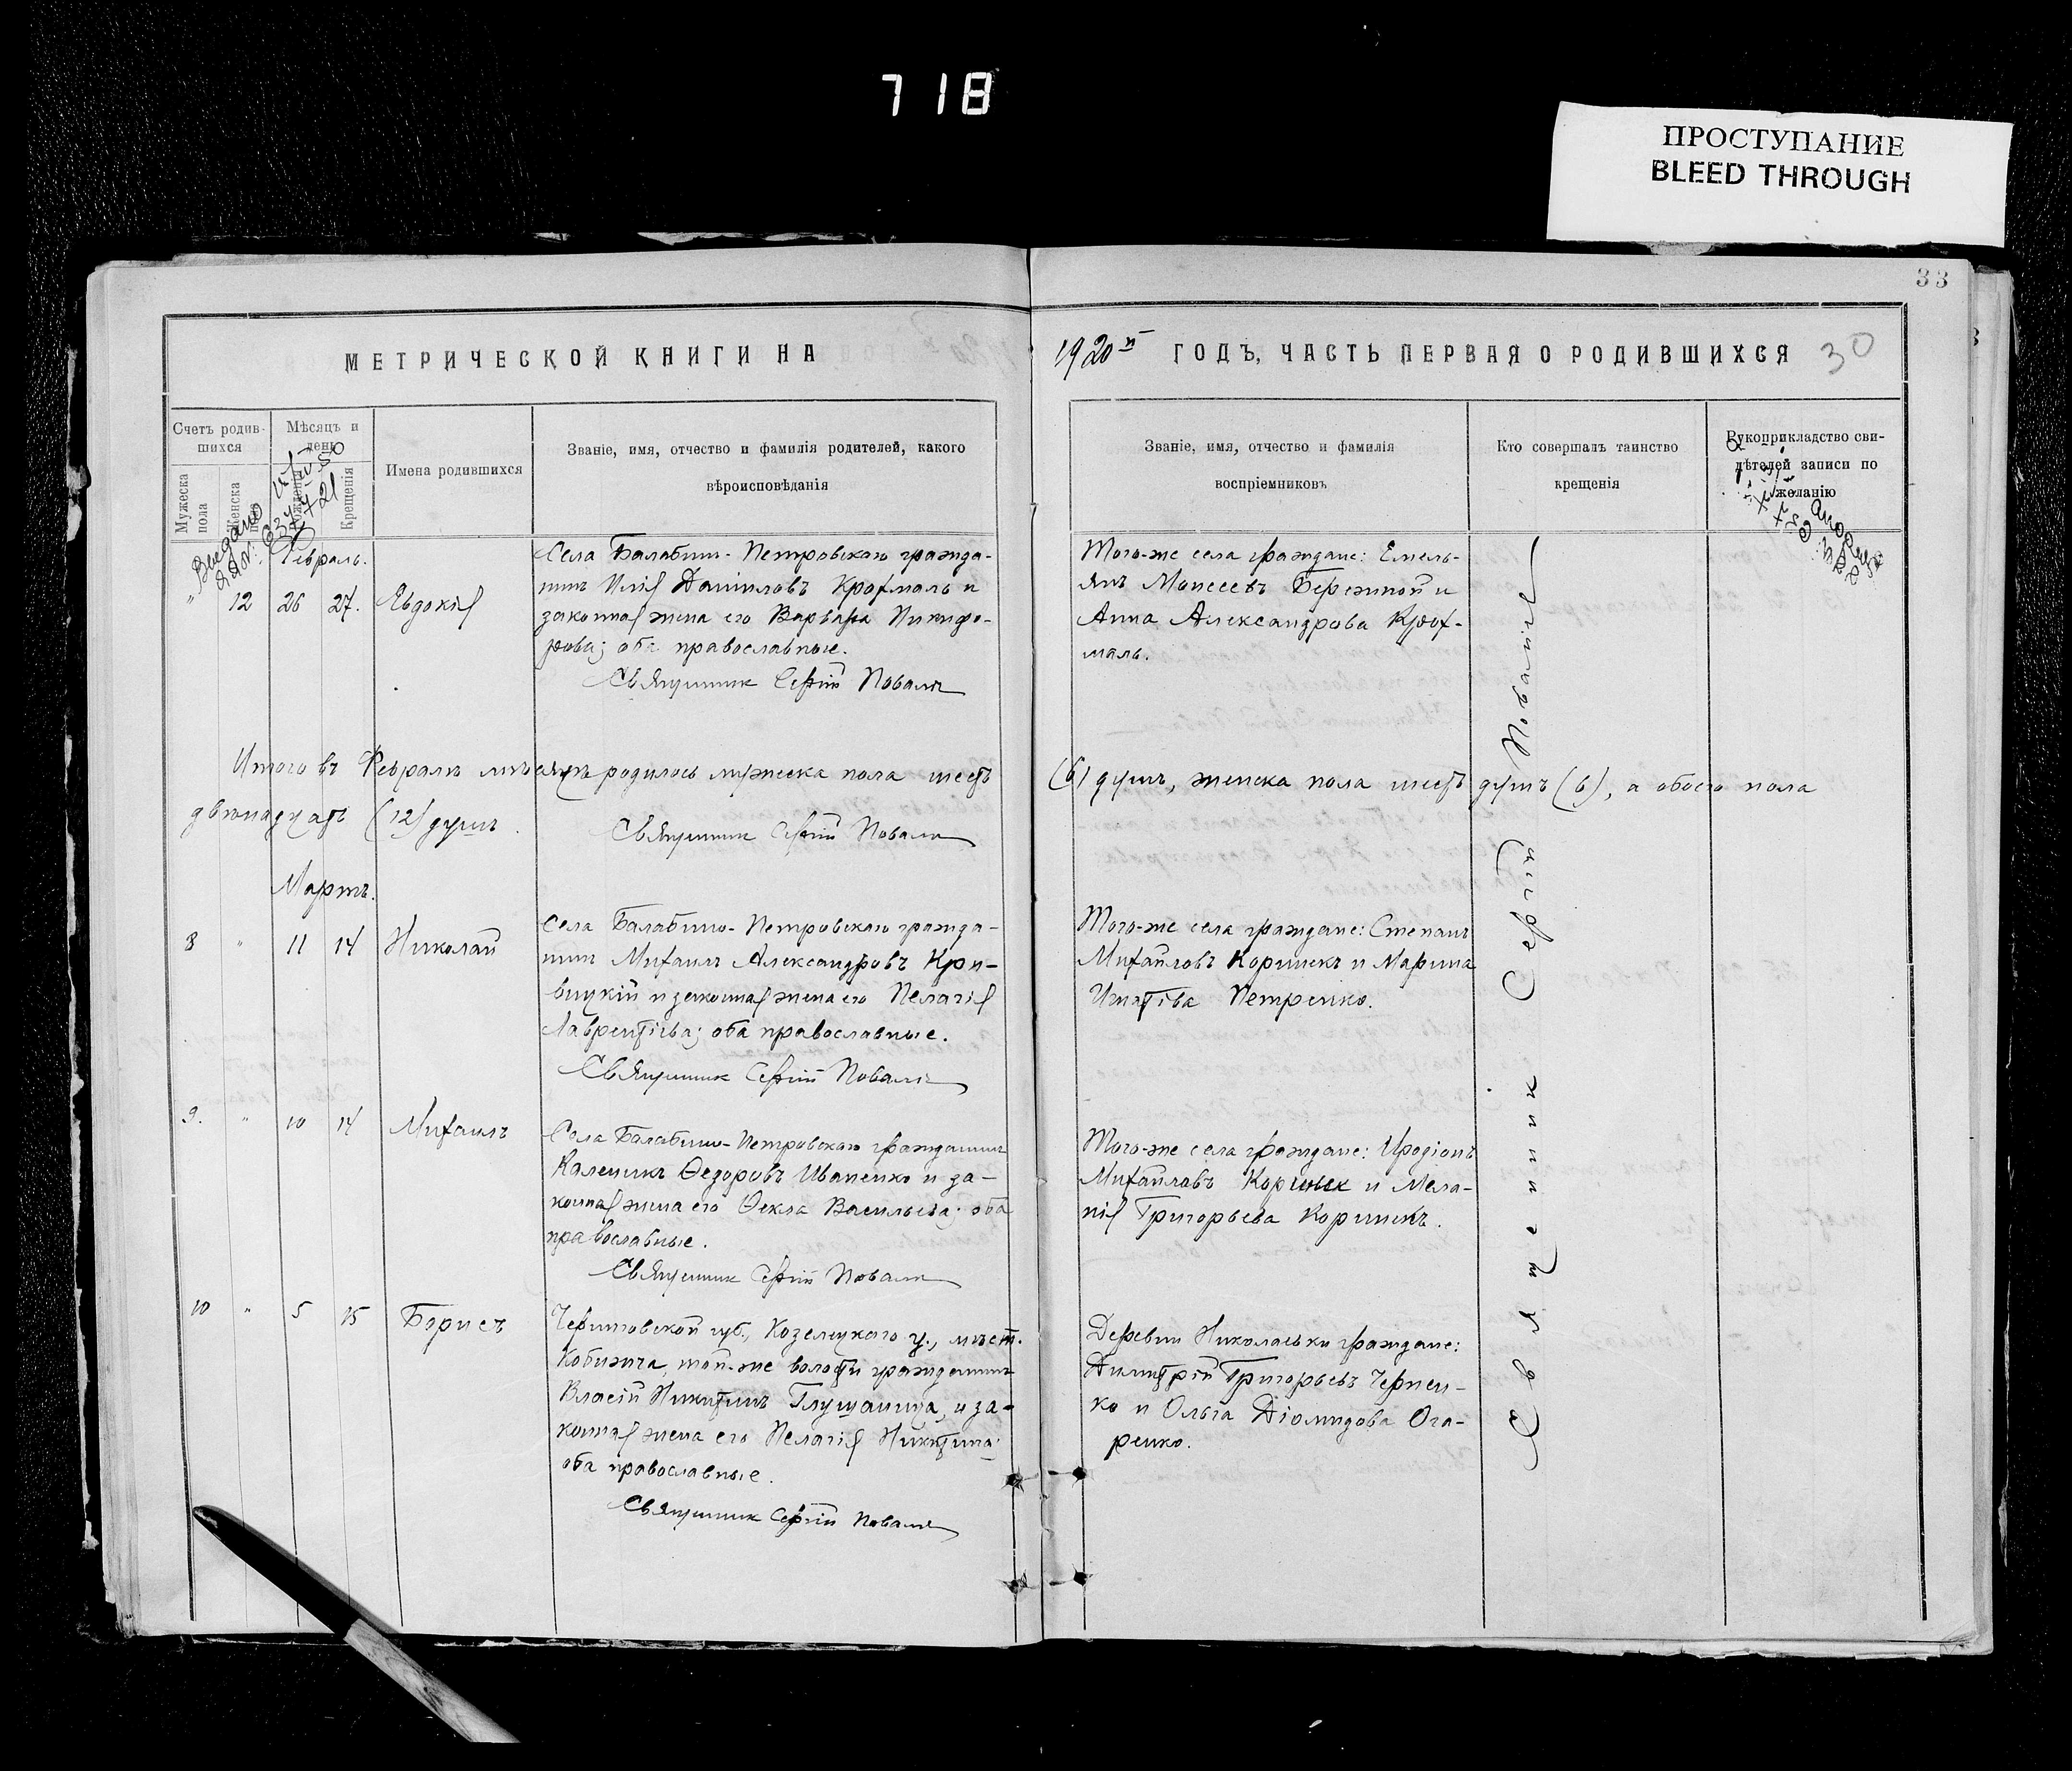 718
ПРОСТУПАНИЕ
BLEED THROUGH
33
МЕТРИЧЕСКОЙ КНИГИ НА
1920й ГОДЪ, ЧАСТЬ ПЕРВАЯ О РОДИВШИХСЯ
30
Счетъ родив-
шихся
Мужеска пола
Женска
Мѣсяцъ и
день
Рожденія
Крещенія
Имена родившихся
Званіе, имя, отчество и фамилія родителей, какого
вѣроисповѣданія
Званіе, имя, отчество и фамилія
воспріемниковъ
Кто совершалъ таинство
крещенія
Рукоприкладство сви-
дѣтелей записи по
желанію
Выдано
Февраль.
" 12 26 27. Евдокія
Села Балабино-Петровскаго гражда-
нинъ Илія Даніиловъ Крохмаль и
законная жена его Варвара Никифо-
рова; оба православные.
Священник Сергій Поваля
Того-же села граждане: Емель-
янъ Моисеевъ Бережной и
Анна Александрова Крох-
маль.
Итого въ Февралѣ мѣсяцѣ родилось мужеска пола шесть (6) душъ, женска пола шесть душъ (6), а обоего пола
двѣнадцать (12) душъ.
Священник Сергій Поваля
Мартъ.
8 " 11 14 Николай
Села Балабино-Петровскаго гражда-
нинъ Михаилъ Александровъ Кри-
вицкій и законная жена его Пелагія
Лаврентіева; оба православные.
Священник Сергій Поваля
Того-же села граждане: Степанъ
Михайловъ Коринекъ и Марина
Игнатіва Петренко.
9. " 10 14 Михаилъ
Села Балабино-Петровскаго гражданинъ
Каленикъ Ѳедоровъ Иваненко и за-
конная жена его Ѳекла Васильева; оба
православные.
Священник Сергій Поваля
Того-же села граждане: Иродіонъ
Михайловъ Коринек и Мела-
нія Григорьева Коринекъ.
10 " 5 15 Борисъ
Черниговской губ., Козелецкого у., мѣст.
Кобижча, той-же волости гражданинъ
Власій Никитинъ Глущаница, и за-
конная жена его Пелагія Никитина;
оба православные.
Священник Сергій Поваля
Деревни Николаевки граждане:
Димитрій Григорьевъ Чернен-
ко и Ольга Діомидова Ога-
ренко.
Священник Сергій Поваля